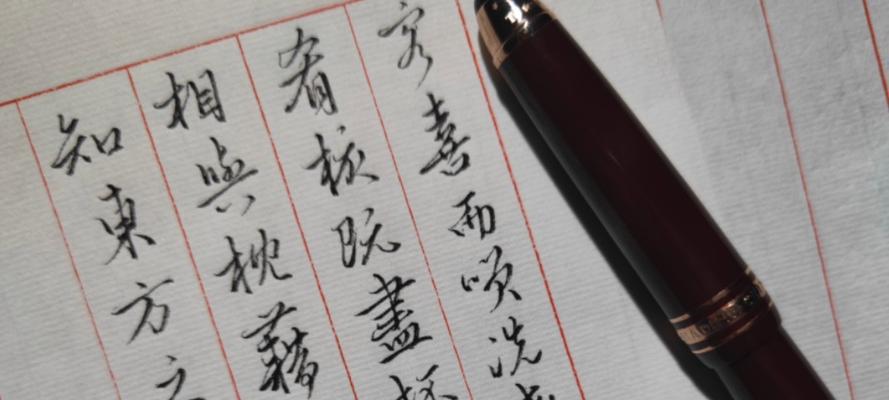 客喜而咲洗
肴核既盡杯
相與枕藉
知東方之